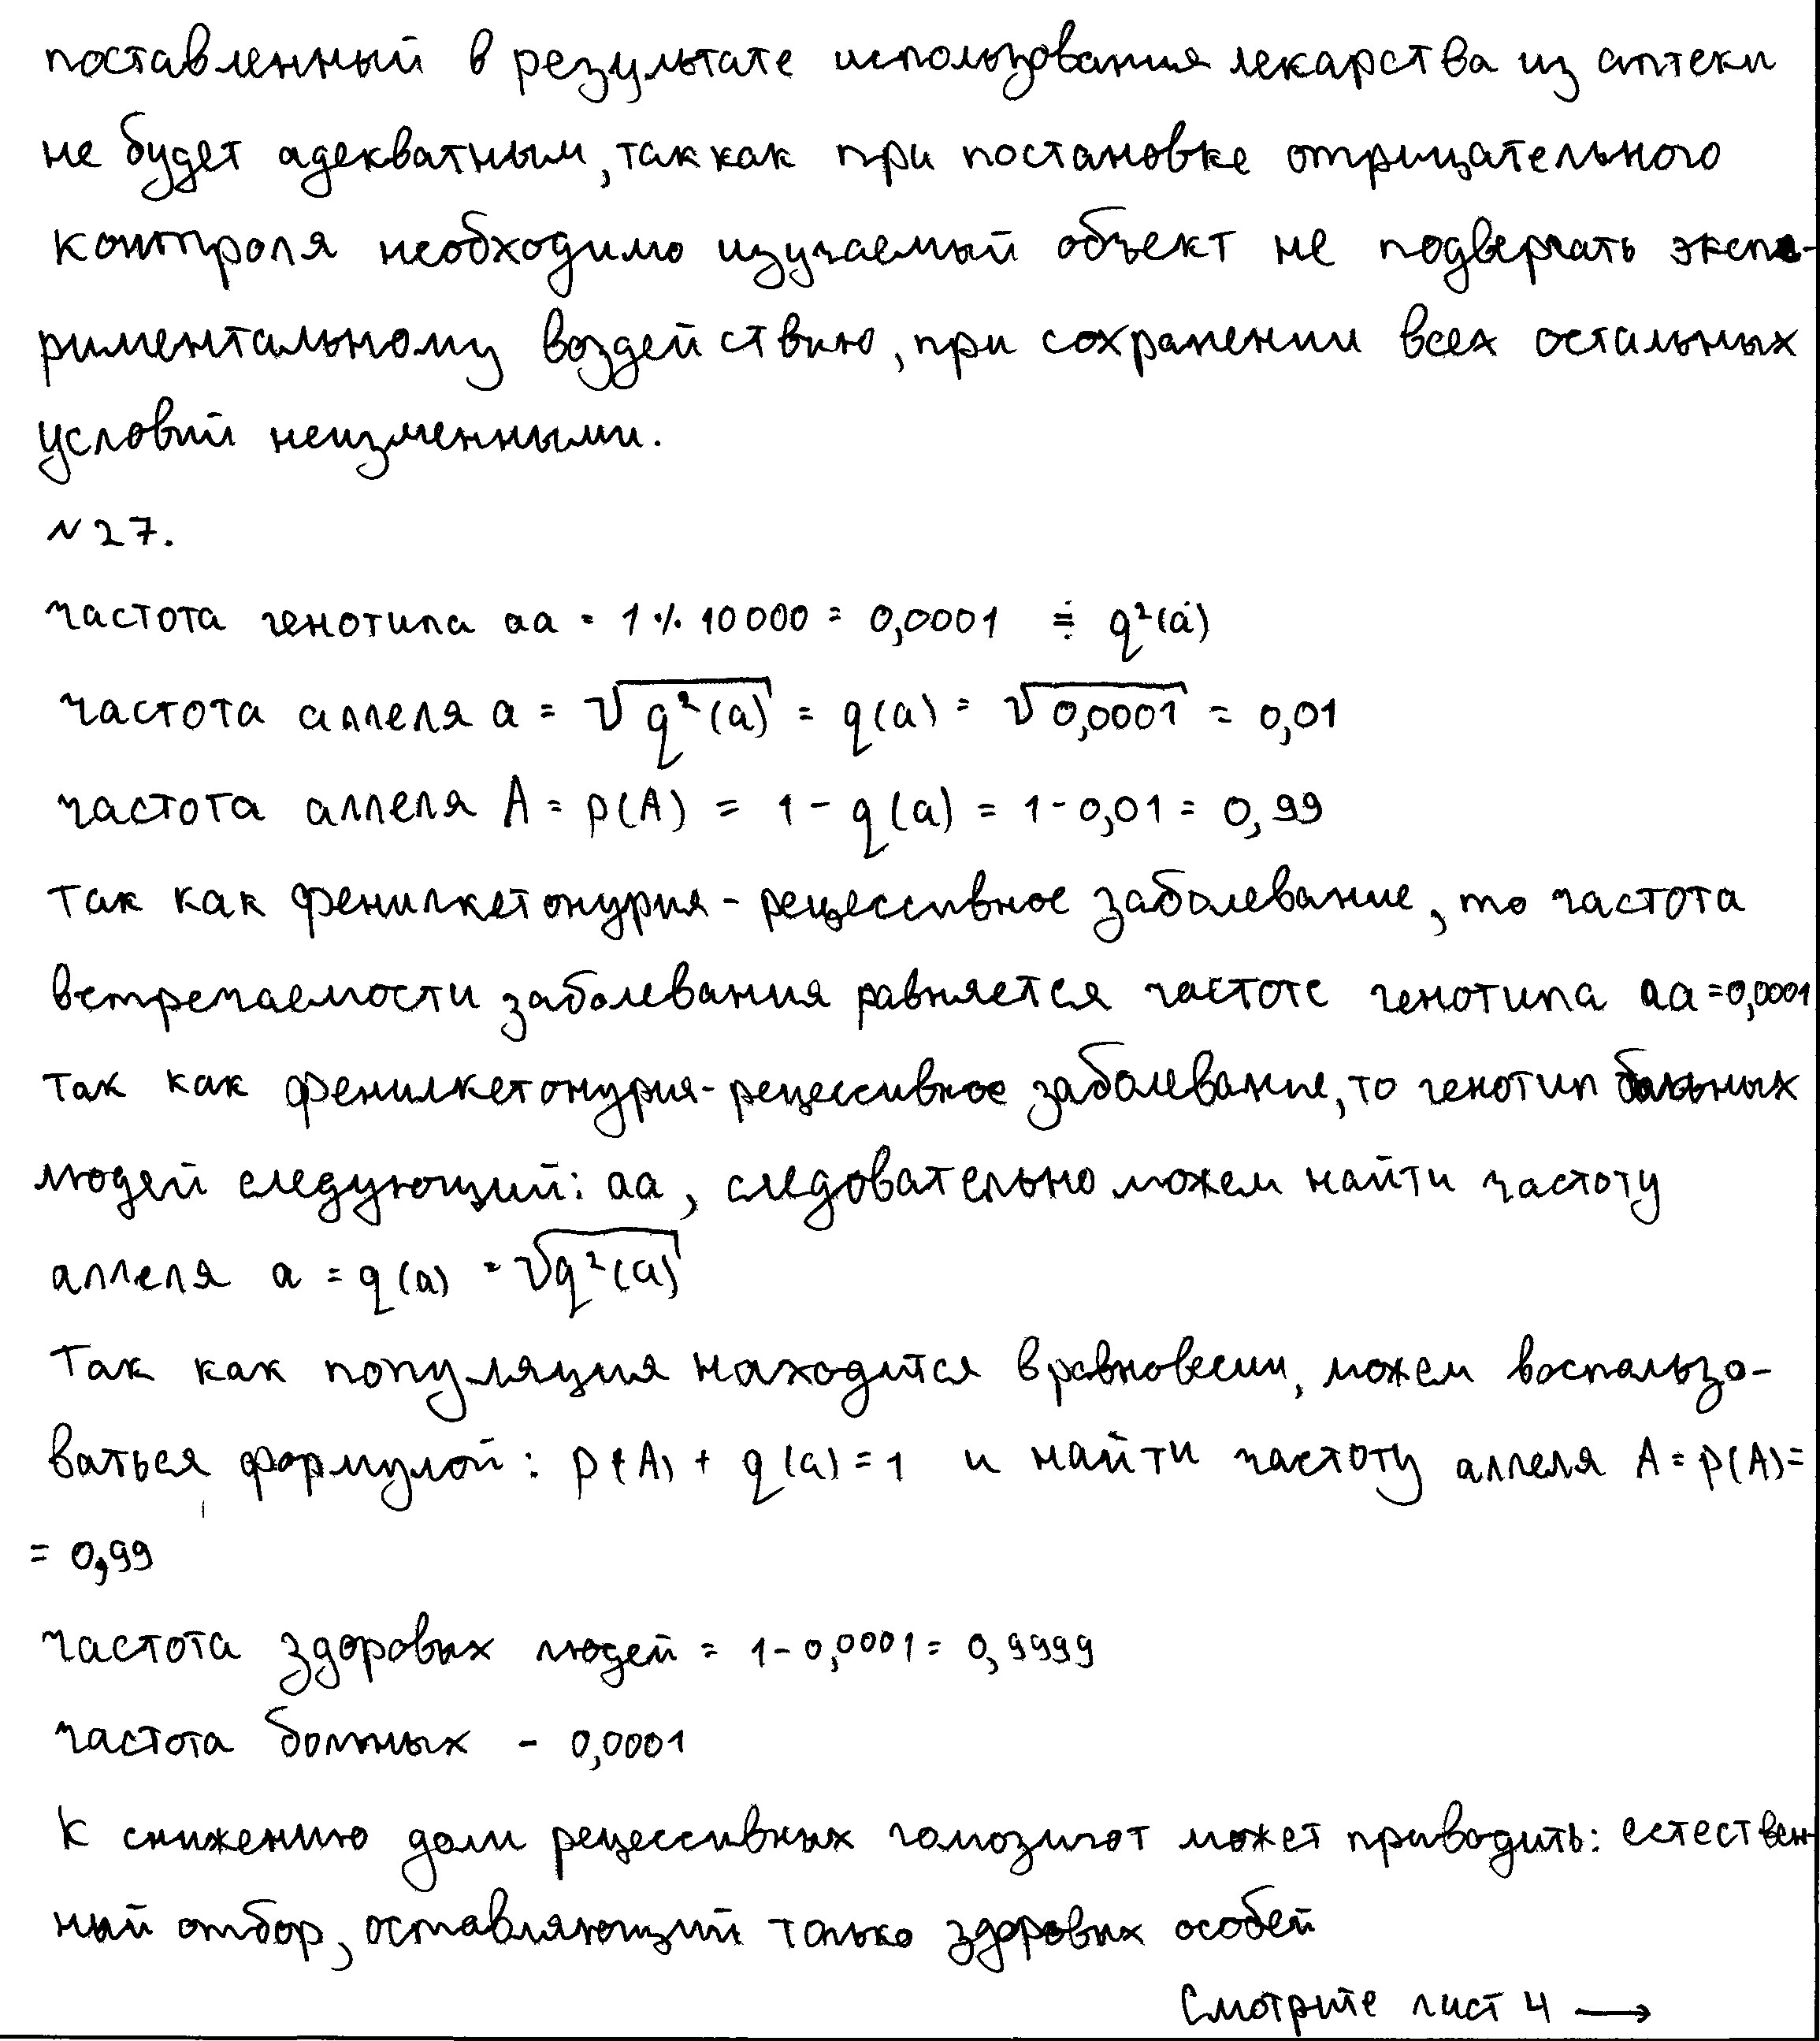 поставленный в результате использования лекарства из аптеки
не будет адекватным, так как при постановке отрицательного
контроля необходимо изучаемый объект не подвергать экспе-
риментальному воздействию, при сохранении всех остальных
условий неизменными.
№ 27.
частота генотипа aa = 1 % 10000 = 0,0001 = q²(a)
частота аллеля a = √q²(a) = q(a) = √0,0001 = 0,01
частота аллеля A = p(A) = 1 - q(a) = 1 - 0,01 = 0,99
Так как фенилкетонурия - рецессивное заболевание, то частота
встречаемости заболевания равняется частоте генотипа aa = 0,0001
Так как фенилкетонурия - рецессивное заболевание, то генотип больных
людей следующий: aa, следовательно можем найти частоту
аллеля a = q(a) = √q²(a)
Так как популяция находится в равновесии, можем воспользо-
ваться формулой: p(A) + q(a) = 1 и найти частоту аллеля A = p(A) =
= 0,99
частота здоровых людей = 1 - 0,0001 = 0,9999
частота больных - 0,0001
К снижению доли рецессивных гомозигот может приводить: естествен-
ный отбор, оставляющий только здоровых особей
Смотрите лист 4 →